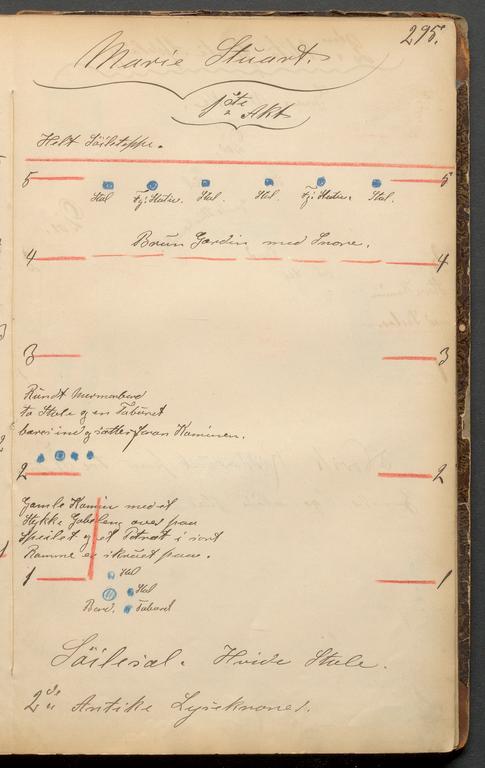 295.
Marie Stuart.
1ste Akt
Helt Söiletæppe.
5 5
Stol Fj: Statue. Stol. Stol. Fj: Statue. Stol.
Brun Gardin med Snore.
4 4
3 3
Rundt Marmorbord
to Stole og en Taburet
bæres ind og sættes foran Kaminen.
2 2
Gamle Kamin med et
Stykke Gobelin over paa
Speilet og et Portræt i sort
Ramme er skruet paa.
1 1
Stol
Stol
Bord. Taburet
Söilesal. Hvide Stole.
2de Antike Lysekroner.